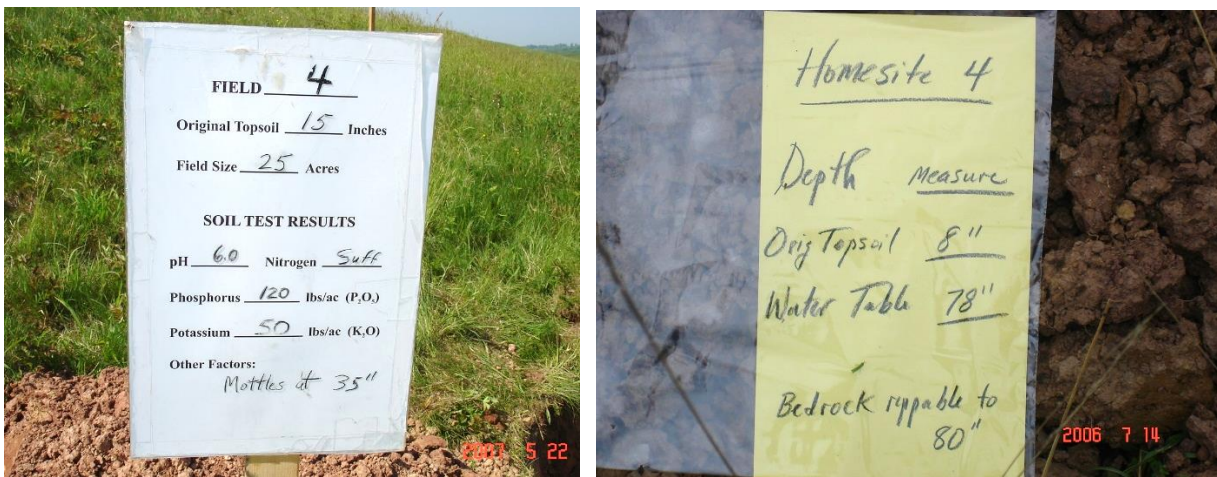 FIELD 4
Original Topsoil 15 Inches
Field Size 25 Acres
SOIL TEST RESULTS
pH 6.0 Nitrogen Suff
Phosphorus 120 lbs/ac (P₂O₅)
Potassium 50 lbs/ac (K₂O)
Other Factors:
Mottles at 35"
2007 5 22
Homesite 4
Depth Measure
Orig Topsoil 8"
Water Table 78"
Bedrock rippable to
80"
2006 7 14